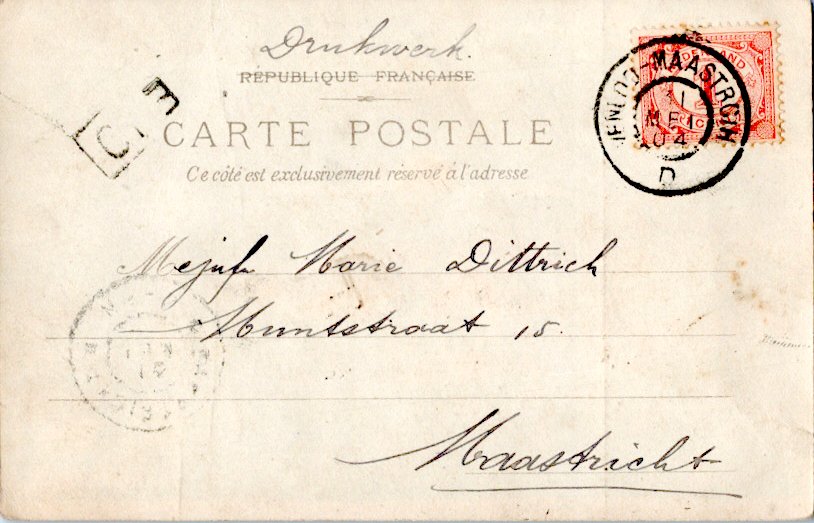 Drukwerk.
RÉPUBLIQUE FRANÇAISE
CARTE POSTALE
Ce côté est exclusivement réservé à l'adresse
VENLOO-MAASTRICHT
11
MEI
04
D
C E
Mejufr Marie Dittrich
Muntstraat 15.
Maastricht